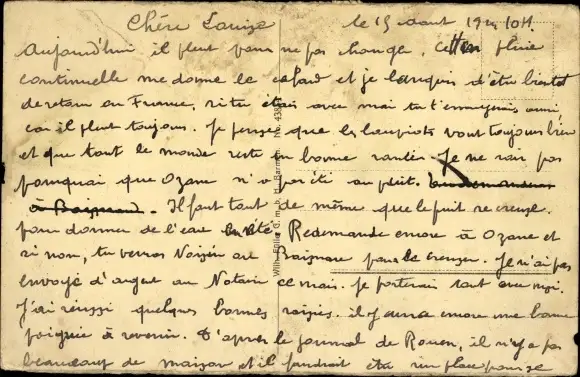 Chère Louise le 15 aout 1924 10H.
Aujourd'hui il pleut pour ne pas changer, Cette pluie
continuelle me donne le cafard et je languis d'être bientôt
de retour en France, si tu étais avec moi tu t'ennuyerais aussi
car il pleut toujours. Je pense que les loupiots vont toujours bien
et que tout le monde reste en bonne santée Je ne sais pas
pourquoi que Ozane n'a pas été au puit.
à Baignard. Il faut tout de même que le puit se creuse.
pour donner de l'eau en été Redemande encore à Ozane et
si non, tu verras Noizée ou Baignare pour le creuser. Je n'ai pas
envoyé d'argent au Notaire ce mois. Je porterai tout avec moi.
J'ai réussi quelques bonnes il y aura encore une bonne
poignée à revenir. D'après le journal de Rouen, il n'y a pas
beaucoup de maison et il faudrait être sur place pour se
Wilh. G. m. b. H., Barmen. No. 438